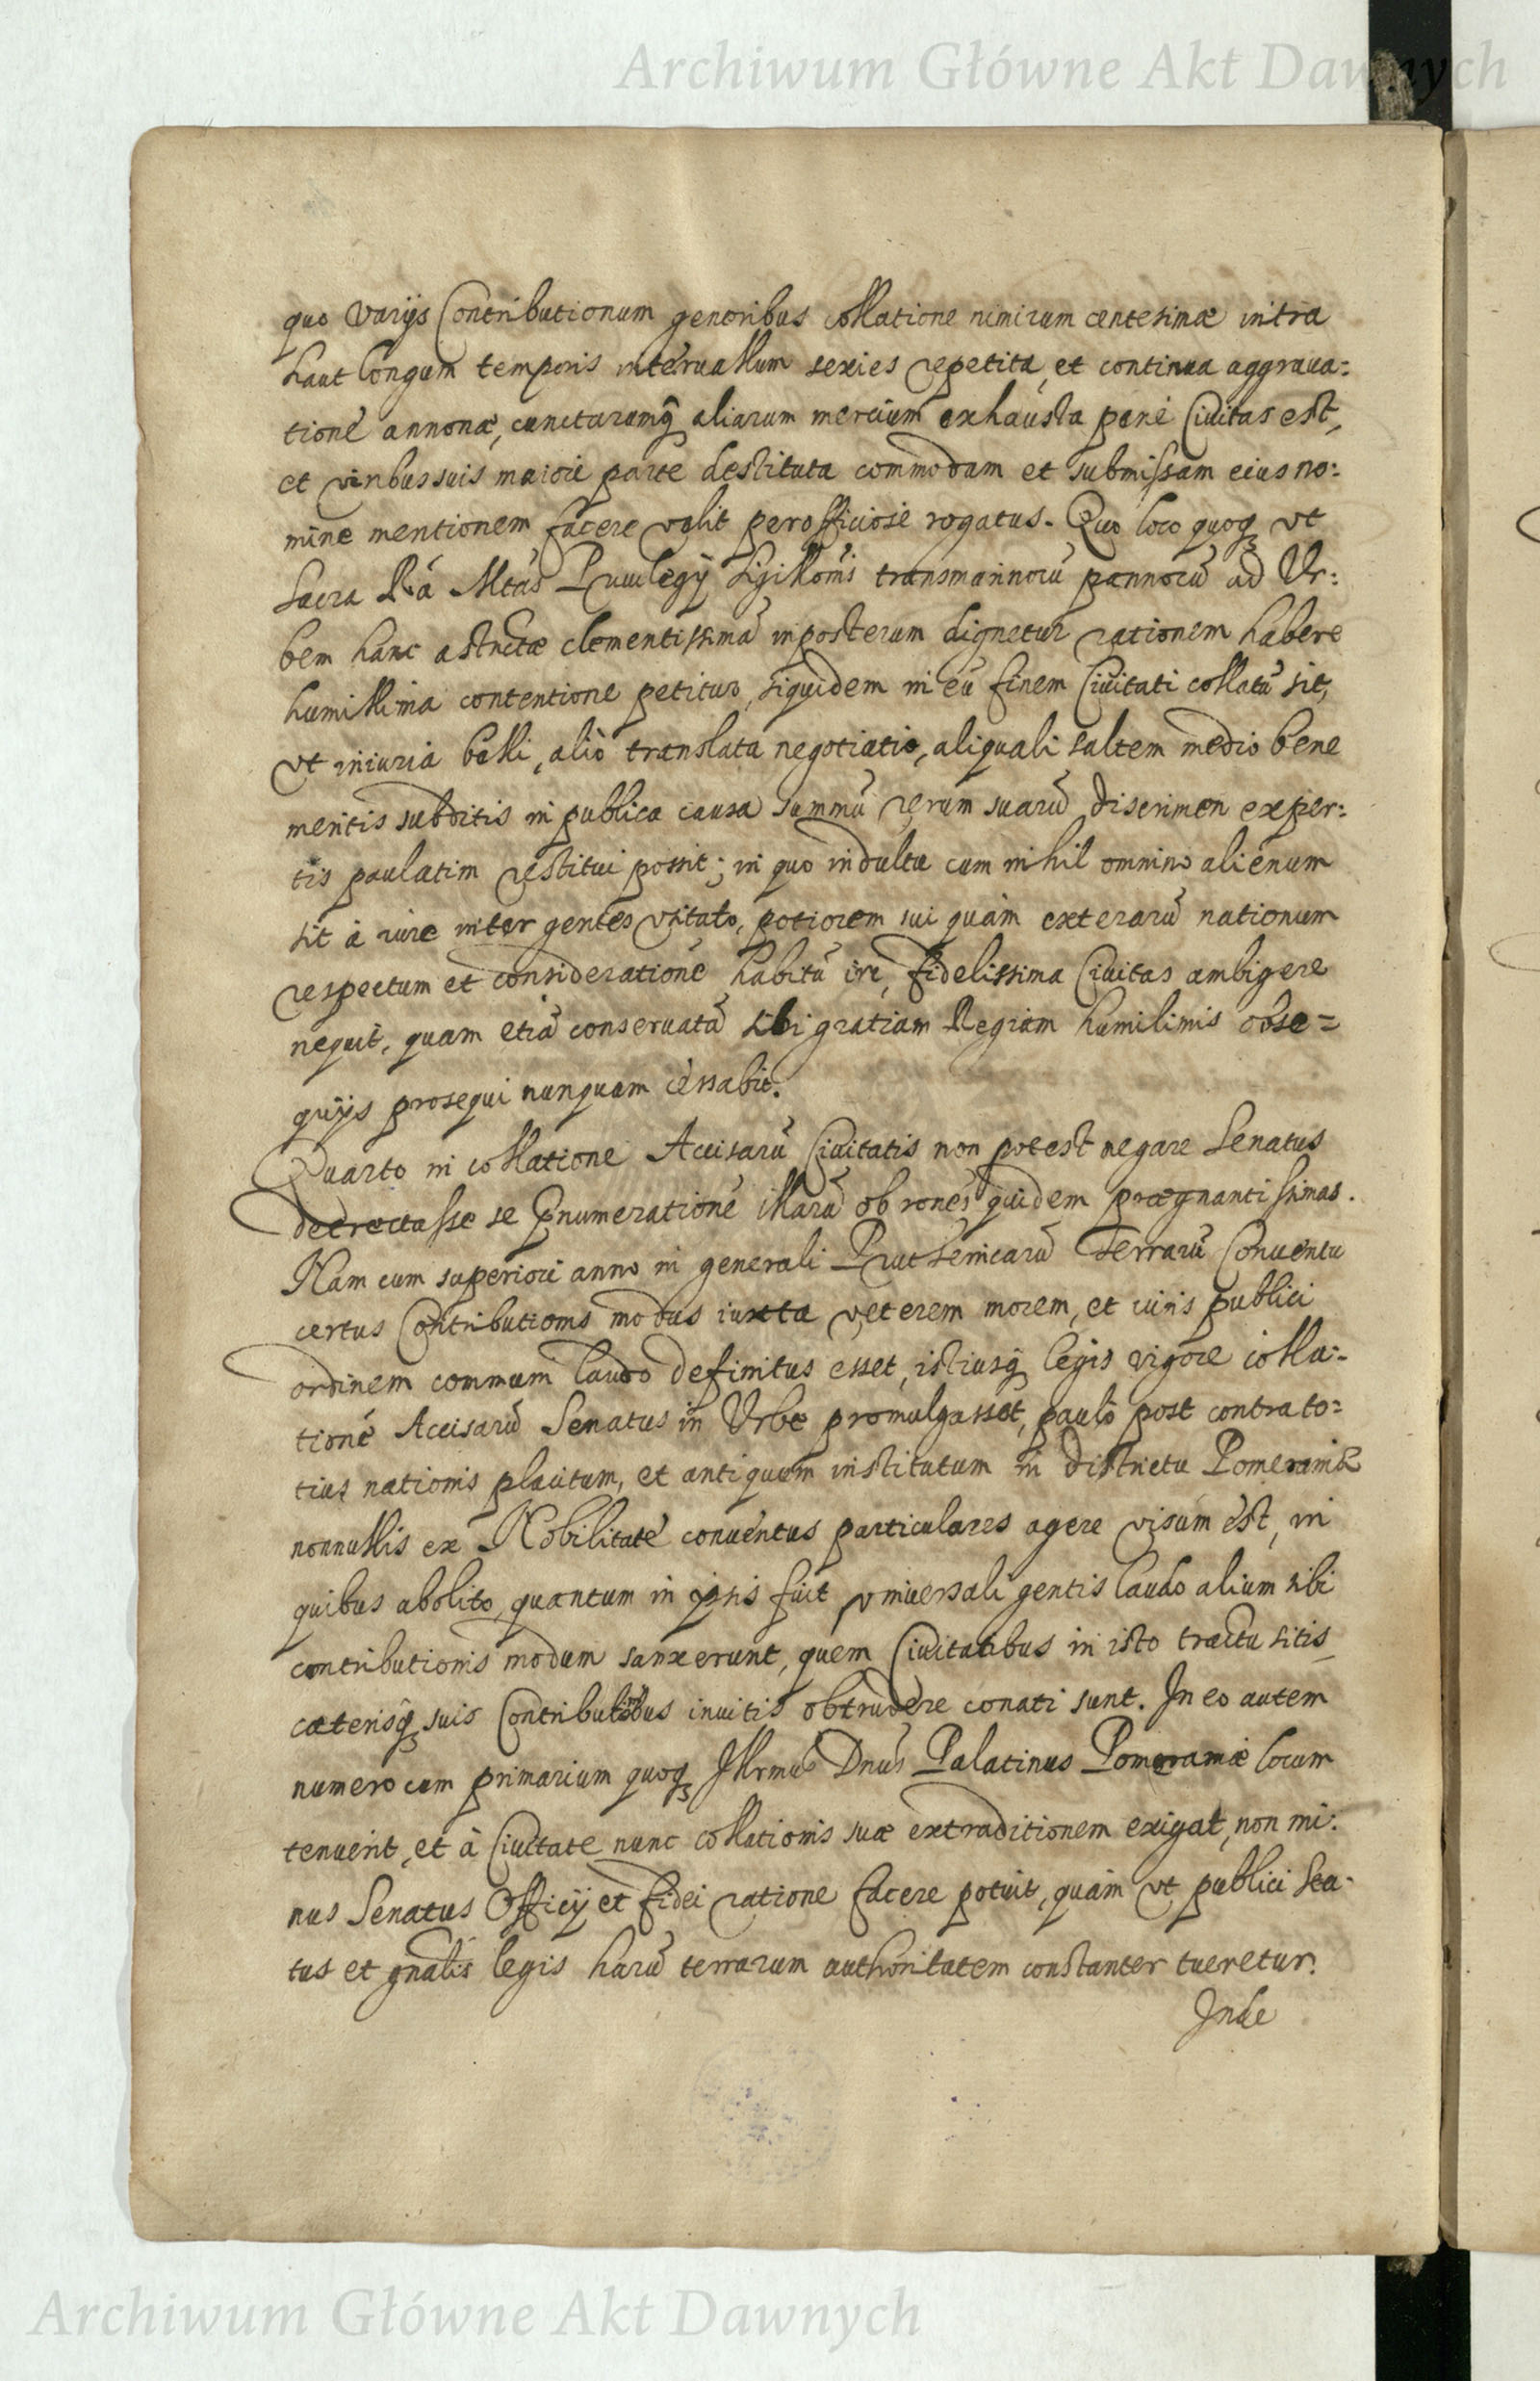 Archiwum Główne Akt Dawnych
quo varijs Contributionum generibus collatione nimirum centesimæ intra
haut longum temporis interuallum sexies repetita, et continua aggraua:
tione annonæ, cunctarumq̃ aliarum mercium exhausta penè Ciuitas est,
et viribus suis maiori parte destituta commodam et submissam eius no:
mine mentionem facere velit perofficiosè rogatus. Quo loco quoq ut
Sacra R.a Mtas Priuilegij Sigilloms transmarinorū pannorū ad Vr:
bem hanc astrictæ clementissimā inposterum dignetur rationem habere
humillima contentione petitur, siquidem in eū finem Ciuitati collatū sit,
vt iniuria belli, aliò translata negotiatio, aliquali saltem medio bene
meritis subditis in publica causa summū rerum suarū discrimen exper:
tis paulatim restitui possit; in quo indultu cum nihil omnino alienum
sit à iure inter gentes vsitato, potiorem sui quàm exterarū nationum
respectum et consideratione habitū iri, fidelissima Ciuitas ambigere
nequit, quam etiā conseruatā sibi gratiam Regiam humilimis obse=
quijs prosequi nunquam cessabit.
Quarto in collatione Accisarū Ciuitatis non potest negare Senatus
detrectasse se Enumeratione illarū ob rones quidem prægnantissimas.
Nam cum superiori anno in generali Pruthenicarū Terrarū Conuentu
certus Contributionis modus iuxta veterem morem, et iuris publici
ordinem communi laudo definitus esset, istiusq̃ legis vigore colla:
tione Accisarū Senatus in Vrbe promulgasset, paulò post contra to:
tius nationis placitum, et antiquum institutum in districtu Pomeraniæ
nonnullis ex Nobilitate conuentus particulares agere visum est, in
quibus abolito, quantum in ipsis fuit, vniuersali gentis laudo alium sibi
contributionis modum sanxerunt, quem Ciuitatibus in isto tractu sitis
cæterisq̃ suis Contribulibus inuitis obtrudere conati sunt. In eo autem
numero cum primarium quoq Illrmus Dnus Palatinus Pomeraniæ locum
tenuerit, et à Ciuitate nunc collationis suæ extraditionem exigat, non mi:
nus Senatus Officij et fidei ratione facere potuit, quàm vt publici Sta:
tus et gnalis legis harū terrarum authoritatem constanter tueretur.
Inde
Archiwum Główne Akt Dawnych